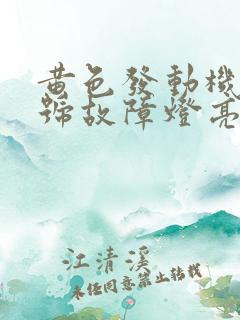 黃色發動機
號故障燈亮
江清溪
未任同意禁止转载